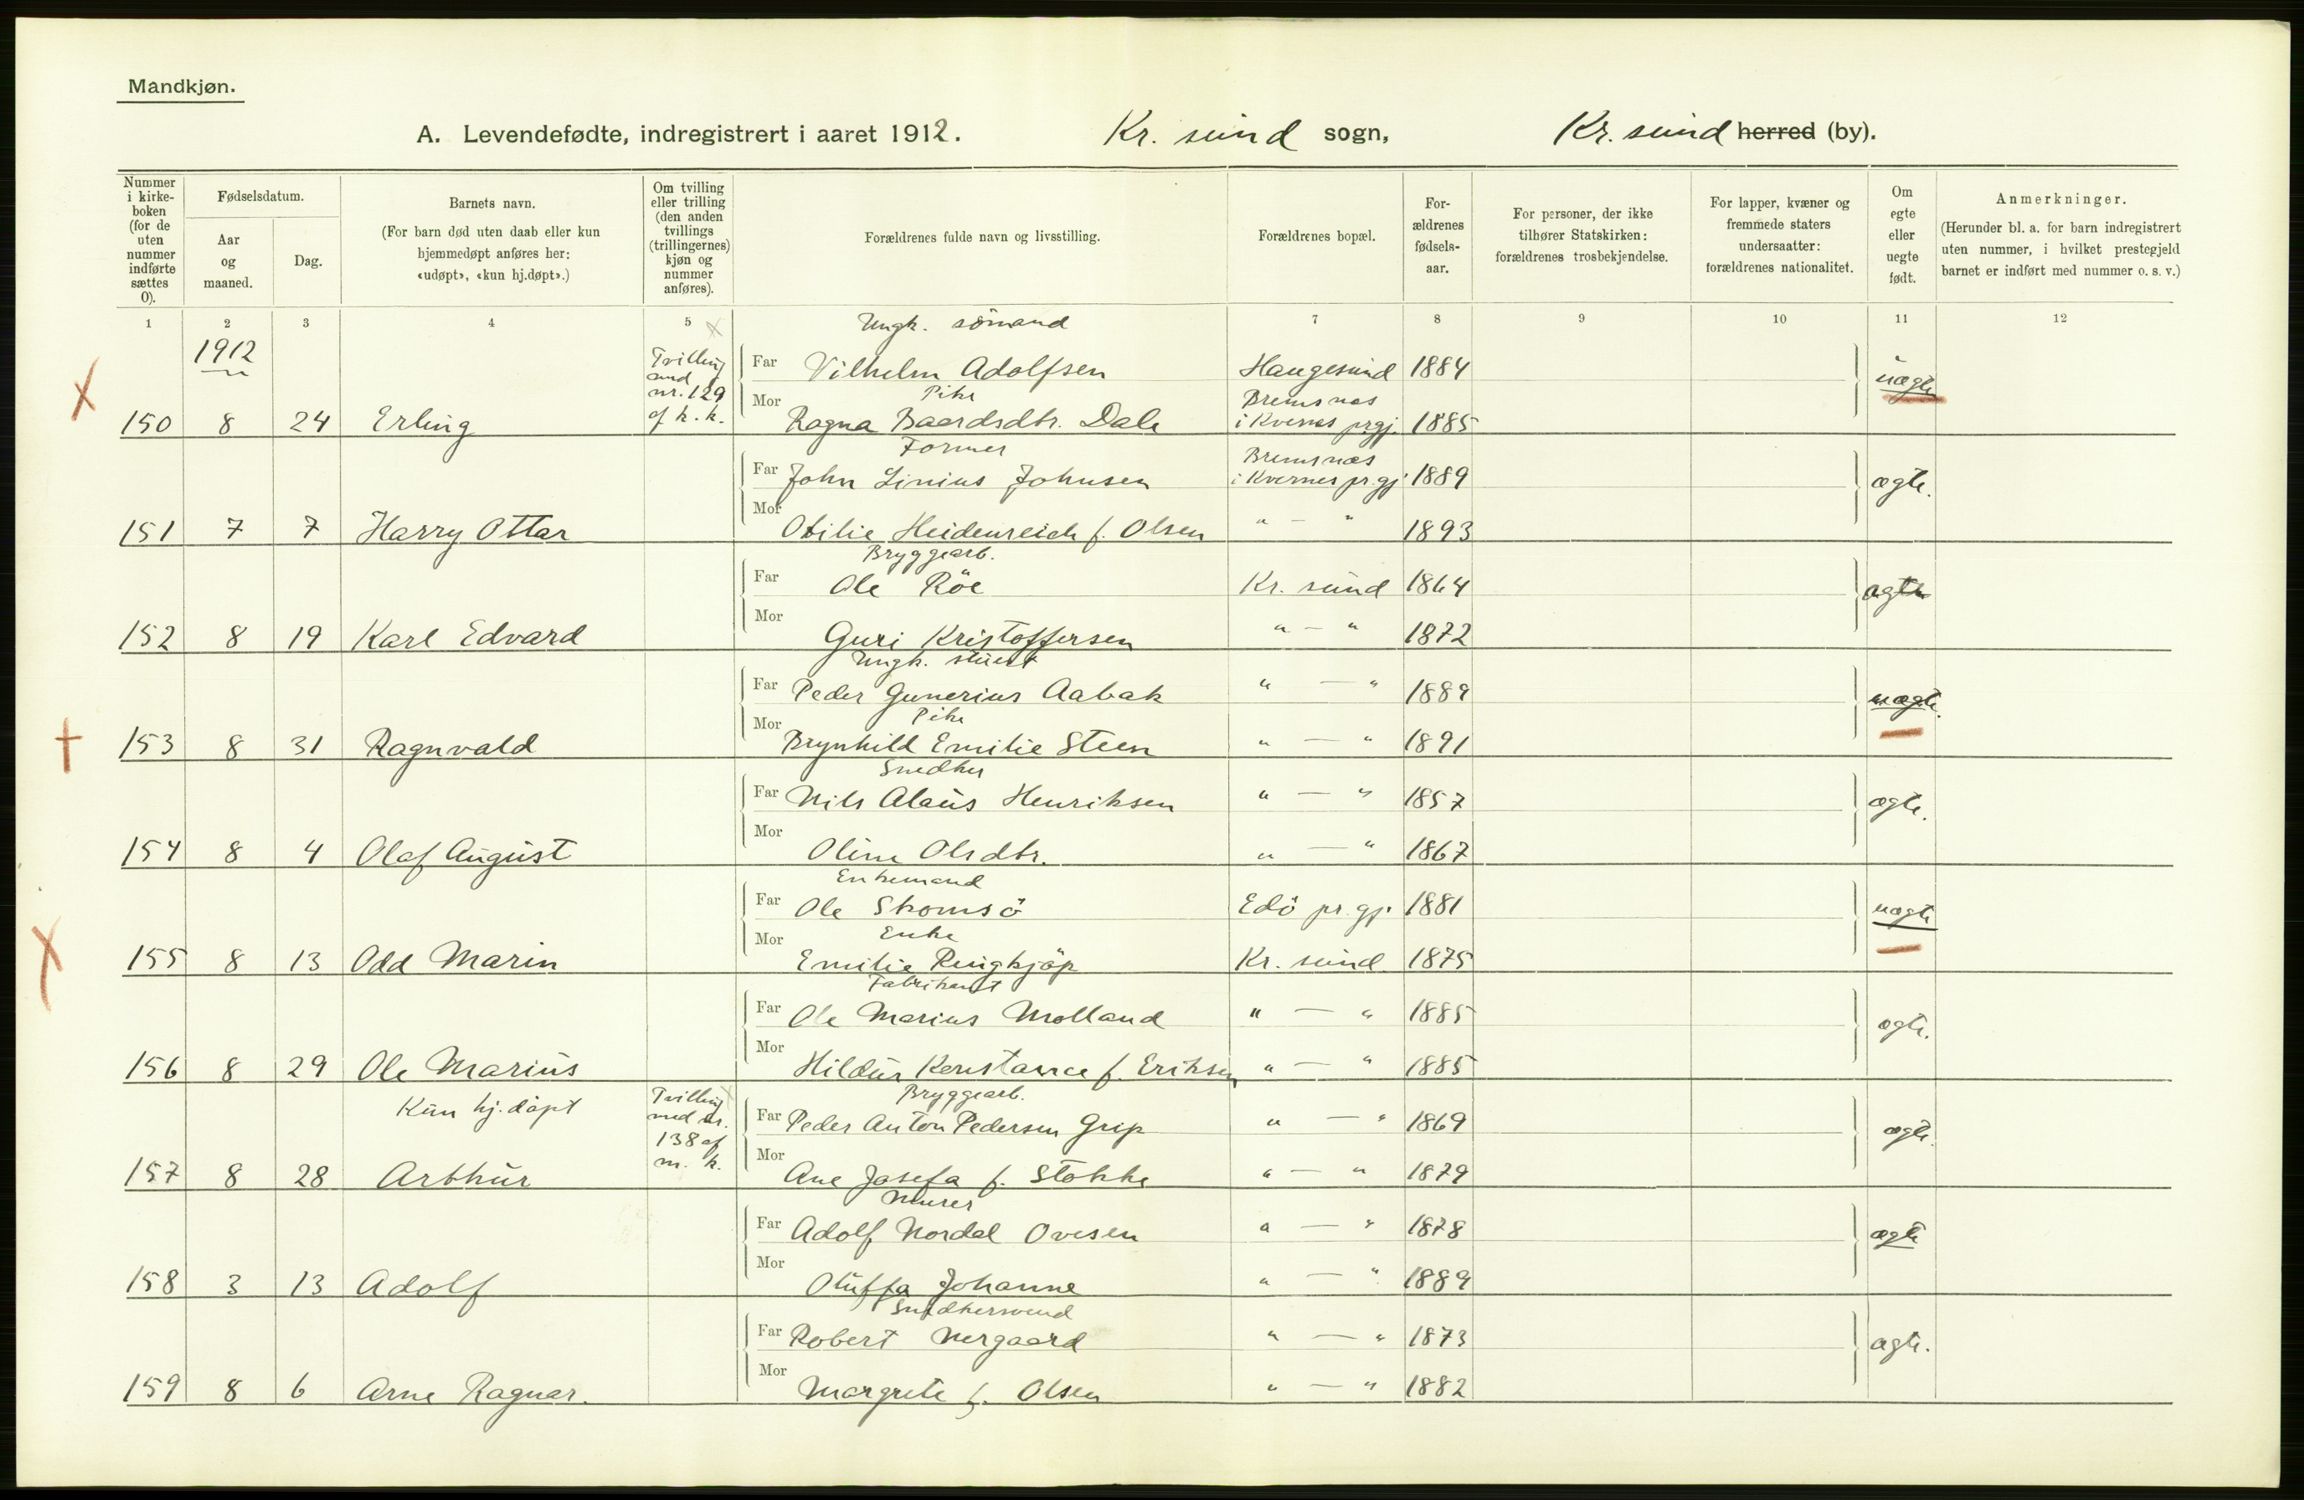 Mandkjøn.
A. Levendefødte, indregistrert i aaret 1912. Kr. sund sogn, Kr. sund herred (by).
Nummer i kirkeboken (for de uten nummer indførte sættes 0).
Fødselsdatum.
Aar og maaned.
Dag.
Barnets navn.
(For barn død uten daab eller kun hjemmedøpt anføres her: «udøpt», «kun hj.døpt».)
Om tvilling eller trilling (den anden tvillings (trillingernes) kjøn og nummer anføres).
Forældrenes fulde navn og livsstilling.
Forældrenes bopæl.
Forældrenes fødselsaar.
For personer, der ikke tilhører Statskirken: forældrenes trosbekjendelse.
For lapper, kvæner og fremmede staters undersaatter: forældrenes nationalitet.
Om egte eller uegte født.
Anmerkninger.
(Herunder bl. a. for barn indregistrert uten nummer, i hvilket prestegjeld barnet er indført med nummer o. s. v.)
1 2 3 4 5 7 8 9 10 11 12
1912
Ungk. sömand
Tvilling med nr. 129 af k. k.
Far Vilhelm Adolfsen Haugesund 1884 uægte
Pike
150 8 24 Erling Mor Ragna Baardsdtr. Dale Bremsnes i Kvernes prgj. 1885
Former
Far John Linius Johnsen Bremsnæs i Kvernes pr.gj. 1889 ægte.
151 7 7 Harry Ottar Mor Otilie Heidenreich f. Olsen " — " 1893
Bryggearb.
Far Ole Röe Kr. sund 1864 ægte
152 8 19 Karl Edvard Mor Guri Kristoffersen " — " 1872
Ungk. stuert
Far Peder Gunerius Aabak " — " 1889 uægte.
Pike
153 8 31 Ragnvald Mor Brynhild Emilie Steen " — " 1891
Snedker
Far Nils Alaus Henriksen " — " 1857 ægte.
154 8 4 Olaf August Mor Oline Olsdtr. " — " 1867
Enkemand
Far Ole Skomsö Edö pr.gj. 1881 uægte
Enke
155 8 13 Odd Marin Mor Emilie Ringkjöp Kr. sund 1875
Fabrikant
Far Ole Marius Molland " — " 1885 ægte.
156 8 29 Ole Marius Mor Hildur Konstance f. Eriksen " — " 1885
Bryggearb.
Kun hj. döpt Tvilling med nr. 138 af m. k.
Far Peder Anton Pedersen Grip " — " 1869 ægte.
157 8 28 Arthur Mor Ane Josefa f. Stokke " — " 1879
Murer
Far Adolf Nordal Ovesen " — " 1878 ægte
158 3 13 Adolf Mor Oluffa Johanne " — " 1889
Snedkersvend
Far Robert Nergaard " — " 1873 ægte.
159 8 6 Arne Ragnar. Mor Margrete f. Olsen " — " 1882